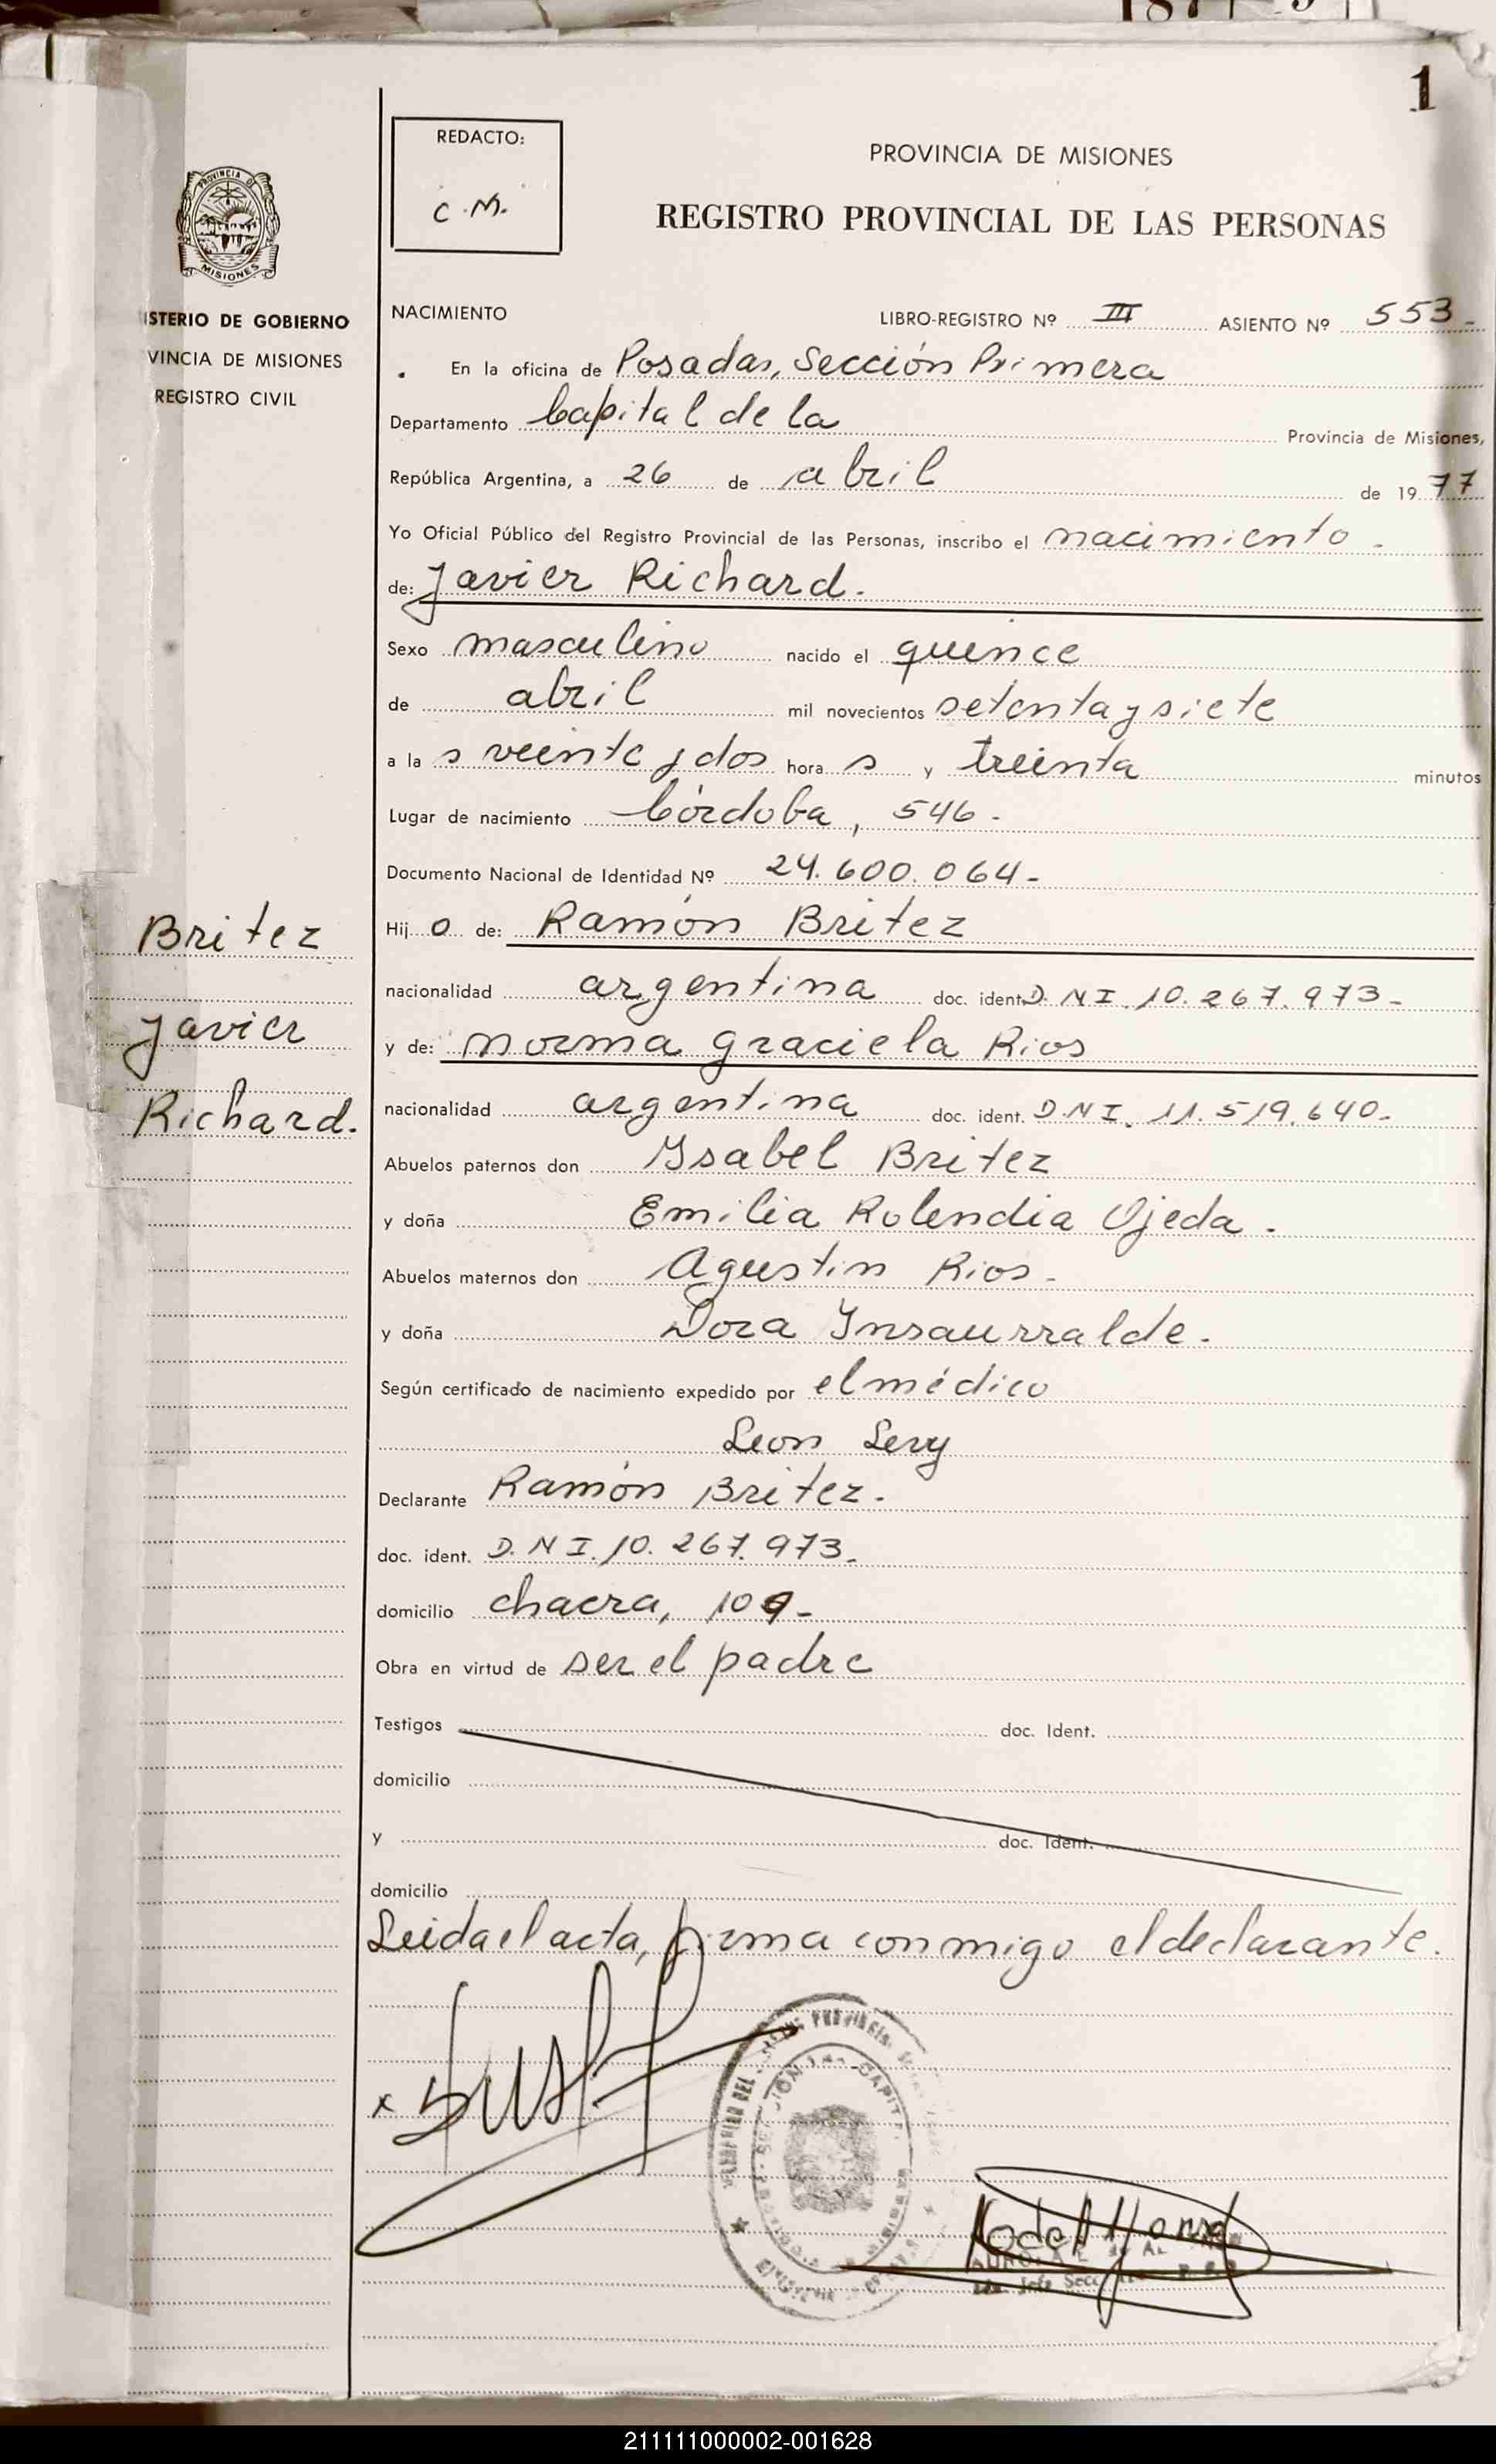 1
REDACTO:
C.M.
PROVINCIA DE MISIONES
REGISTRO PROVINCIAL DE LAS PERSONAS
PROVINCIA DE
MISIONES
ISTERIO DE GOBIERNO
VINCIA DE MISIONES
REGISTRO CIVIL
NACIMIENTO
LIBRO-REGISTRO Nº III ASIENTO Nº 553-
En la oficina de Posadas, Sección Primera
Departamento Capital de la Provincia de Misiones,
República Argentina, a 26 de abril de 1977
Yo Oficial Público del Registro Provincial de las Personas, inscribo el nacimiento.
de: Javier Richard.
Sexo masculino nacido el quince
de abril mil novecientos setenta y siete
a la s veinte y dos hora s y treinta minutos
Lugar de nacimiento Córdoba, 546-
Documento Nacional de Identidad Nº 24.600.064-
Britez
Javier
Richard.
Hij o de: Ramón Britez
nacionalidad argentina doc. ident. D.N.I. 10.267.973-
y de: Norma Graciela Rios
nacionalidad argentina doc. ident. D.N.I. 11.519.640-
Abuelos paternos don Ysabel Britez
y doña Emilia Rolendia Ojeda.
Abuelos maternos don Agustin Rios-
y doña Dora Ynsaurralde.
Según certificado de nacimiento expedido por el médico
Leon Levy
Declarante Ramón Britez.
doc. ident. D.N.I. 10.267.973.
domicilio chacra, 109-
Obra en virtud de ser el padre
Testigos doc. Ident.
domicilio
y doc. Ident.
domicilio
Leida el acta, firma conmigo el declarante.
x
211111000002-001628